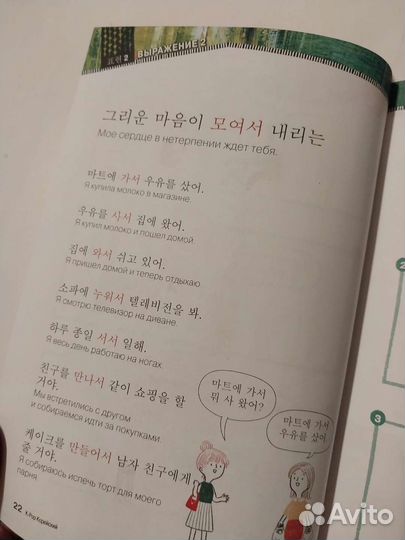 표현 2 ВЫРАЖЕНИЕ 2
그리운 마음이 모여서 내리는
Мое сердце в нетерпении ждет тебя.
마트에 가서 우유를 샀어.
Я купила молоко в магазине.
우유를 사서 집에 왔어.
Я купил молоко и пошел домой.
집에 와서 쉬고 있어.
Я пришел домой и теперь отдыхаю
소파에 누워서 텔레비전을 봐.
Я смотрю телевизор на диване.
하루 종일 서서 일해.
Я весь день работаю на ногах.
친구를 만나서 같이 쇼핑을 할
거야.
Мы встретились с другом
и собираемся идти за покупками.
케이크를 만들어서 남자 친구에게
줄 거야.
Я собираюсь испечь торт для моего
парня.
마트에 가서
뭐 사 왔어?
마트에 가서
우유를 샀어
22 K-Pop Корейский
2
3
Avito